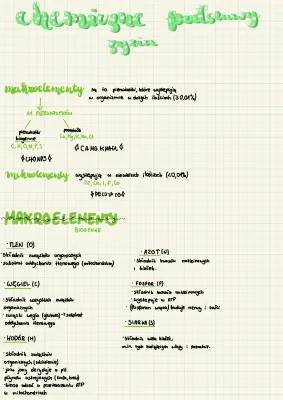 chemiczne podstawy
życia
makroelementy są to pierwiastki, które występują
w organizmie w dużych ilościach (≥0,01%)
11 PIERWIASTKÓW
pierwiastki
biogenne
C, H, O, N, P, S
CHONPS
pozostałe
Ca, Mg, K, Na, Cl
CA MG K NA CL
mikroelementy występują w niewielkich ilościach (<0,01%)
Fe, Cu, I, F, Co
MAKROELEMENTY
BIOGENNE
· TLEN (O)
· Składnik związków organicznych
· substrat oddychania tlenowego (mitochondria)
· WĘGIEL (C)
· Składnik wszystkich związków
organicznych
· związki węgla (glukoza) → substrat
oddychania tlenowego
· WODÓR (H)
· Składnik związków
organicznych
· jony decydują o pH
płynów ustrojowych
· bierze udział w powstawaniu ATP
w mitochondriach
· AZOT (N)
· Składnik kwasów nukleinowych
i białek.
· FOSFOR (P)
· składnik kwasów nukleinowych
· występuje w ATP
(fosforan wapnia) buduje zęby i kości
· SIARKA (S)
· Składnik wielu białek,
min. tych budujących włosy i paznokcie.